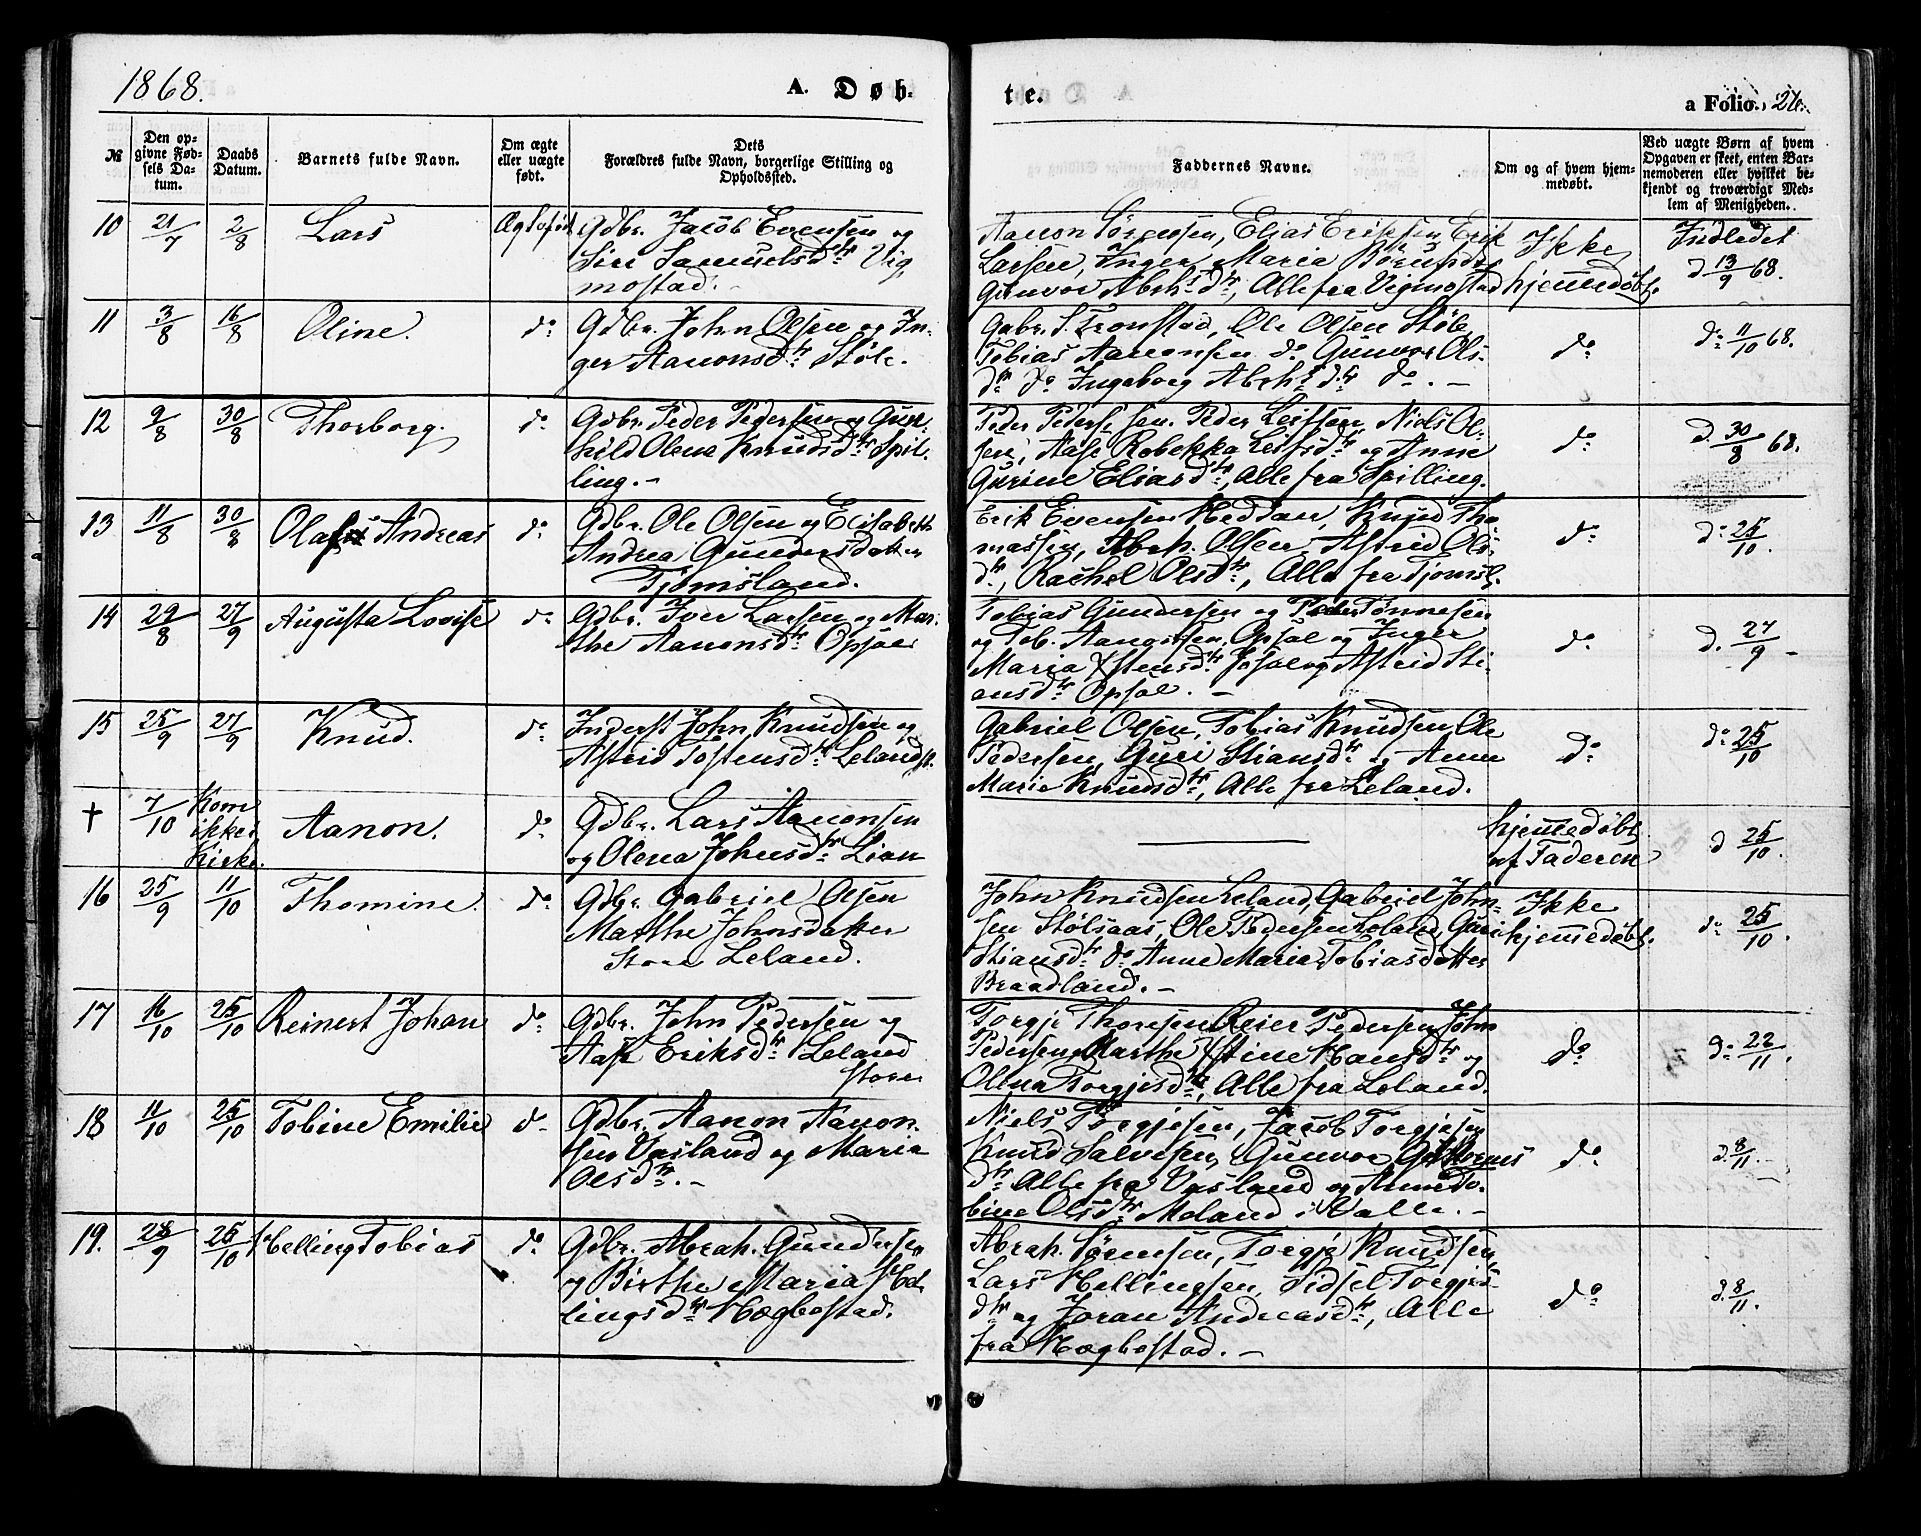 1868.
A. Døb-
te.
a Folio. 26.
№
Den op-
givne Fød-
sels Da-
tum.
Daabs
Datum.
Barnets fulde Navn.
Om ægte
eller uægte
født.
Dets
Forældres fulde Navn, borgerlige Stilling og
Opholdssted.
Faddernes Navne.
Om og af hvem hjem-
medøbt.
Ved uægte Børn af hvem
Opgaven er skeet, enten Bar-
nemoderen eller hvilket be-
kjendt og troværdigt Med-
lem af Menigheden.
10 21/7 2/8 Lars Ægtefød
Gdbr. Jacob Evensen og
Siri Samuelsdtr Vig
mostad. -
Aanon Sørgessen, Elias Eriksen, Erik
Larsen, Inger Maria
Gunvor Abrh.sdtr, Alle fra Vigmostad
Ikke
hjemmedøbt.
Indledet
d 13/9 68.
11 3/8 16/8 Oline. do
Gdbr. John Olsen og In-
ger Aanonsdtr Støle.
Gabr. S. Tronstad, Ole Olsen Støle,
Tobias Aanonsen do Gunvor Ols-
dtr do Ingeborg Abrh.sdtr do. -
do
do 11/10 68.
12 9/8 30/8 Thorborg. do
Gdbr. Peder Pedersen og Gun-
hild Olena Knudsdtr Spil-
ling. -
Peder Pedersen, Peder Leifsen, Niels Ol-
sen, Aase Rebekka Leifsdtr og Anne
Gurine Eliasdtr, Alle fra Spilling.
do
d. 30/8 68.
13 11/8 30/8 Olaf Andreas do
Gdbr. Ole Olsen og Elisabeth
Andrea Gundersdatter
Tjomsland.
Erik Evensen Heddan, Knud Tho-
massen, Abrh. Olsen, Astrid Ols-
dtr, Rachel Olsdtr, Alle fra Tjomsl.
do
do 25/10.
14 29/8 27/9 Augusta Lovise do
Gdbr. Iver Larsen og Mar-
the Aanonsdtr Opsal
Tobias Gundersen og Peder Tønnesen
og Tob. Aanonsen, Opsal og Inger
Maria Xstensdtr Josal og Astrid Sti-
ansdtr Opsal. -
do
d. 27/9 -
15 25/9 27/9 Knud. do
Inderst John Knudsen og
Astrid Tostensdtr Leland
Gabriel Olsen, Tobias Knudsen, Ole
Pedersen, Guri Stiansdtr og Anne
Marie Knudsdtr, Alle fra Leland.
do
do 25/10
† 7/10 Kom
ikke i
Kirke.
Aanon. do
Gdbr. Lars Aanonsen
og Olena Johnsdtr Lian
hjemmedøbt
af Faderen
d 25/10.
16 25/9 11/10 Thomine. do
Gdbr. Gabriel Olsen
Marthe Johnsdatter
Store Leland.
John Knudsen Leland, Gabriel John-
sen Stølsaas, Ole Pedersen Leland, Guri
Stiansdtr do Anne Maria Tobiasdatter
Braadland. -
Ikke
hjemmedøbt.
do 25/10.
17 16/10 25/10 Reinert Johan do
Gdbr. John Pedersen og
Aase Eriksdtr Leland
store
Torgje Thoresen, Reier Pedersen, John
Pedersen, Marthe Xstine Hansdtr og
Olena Torgjesdtr, Alle fra Leland.
do
do 22/11.
18 11/10 25/10 Tobine Emilie do
Gdbr. Aanon Aanon-
sen Vasland og Maria
Olsdtr. -
Niels Torgjesen, Jacob Torgjesen
Knud Salvesen, Gunvor Guttorms
dtr Alle fra Vasland og Anne To-
bine Olsdtr Moland i Valle. -
do
d. 8/11. -
19. 28/9 25/10 Helling Tobias do
Gdbr. Abrah. Gundersen
og Birthe Maria Hel-
lingsdtr Hægbostad.
Abrah. Sørensen, Torgje Knudsen,
Lars Hellingsen, Sidsel Torgjes-
dtr og Joran Andreasdtr, Alle
fra Hægbostad. -
do
d. 8/11.